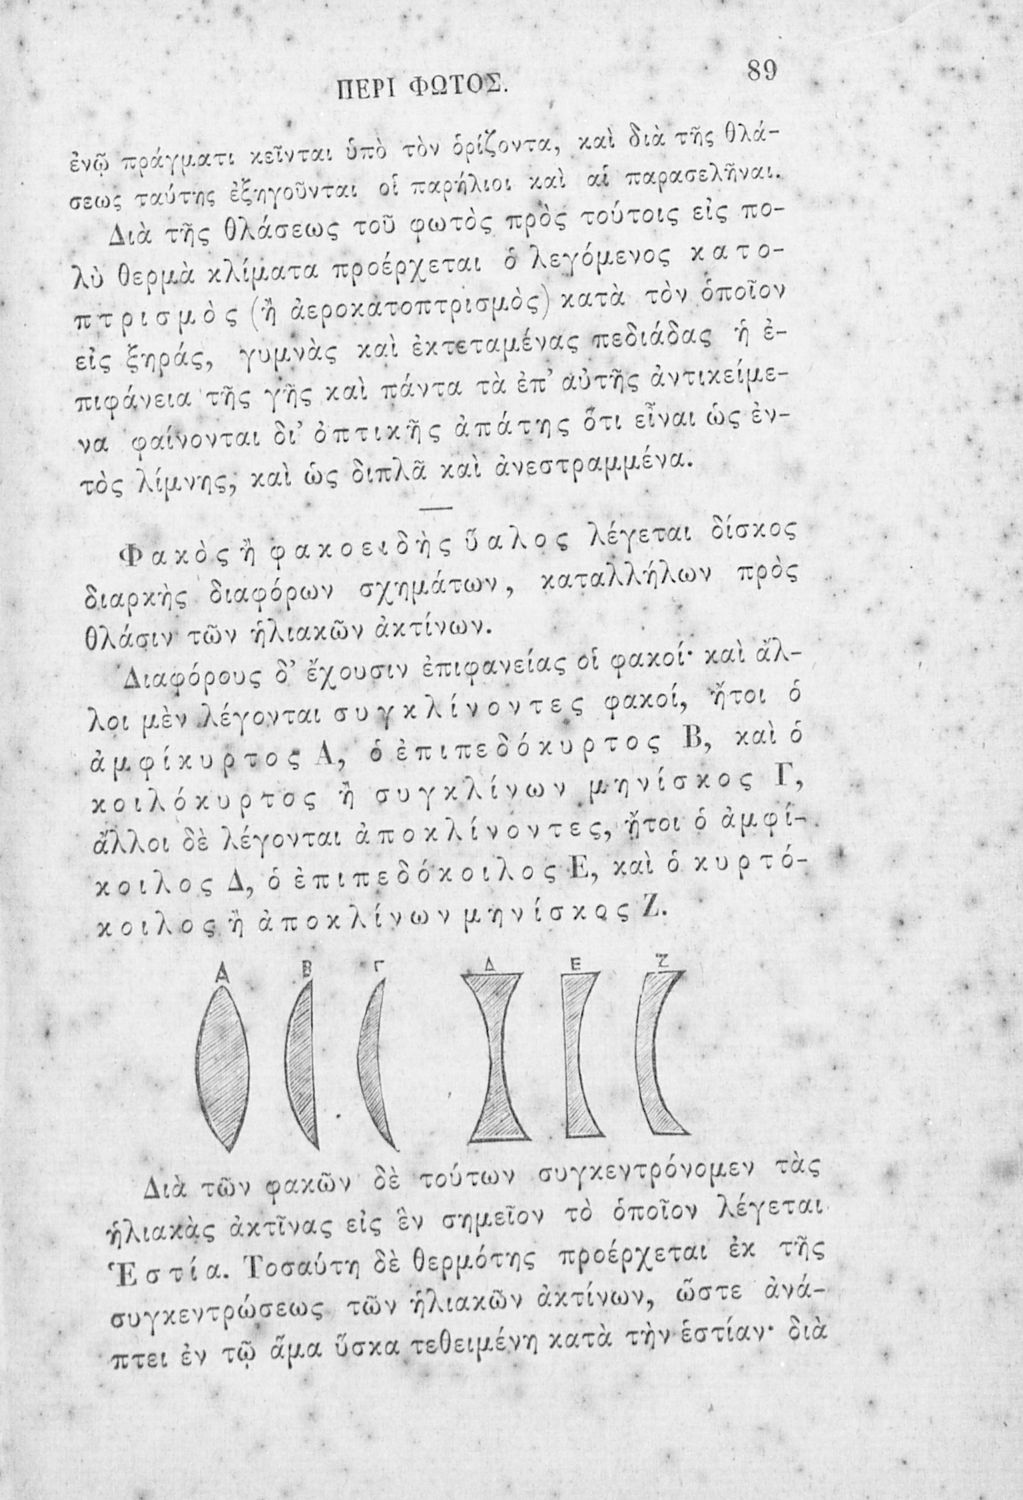 ΠΕΡΙ ΦΩΤΟΣ.
89
ἐνῷ πράγματι κεῖνται ὑπὸ τὸν ὁρίζοντα, καὶ διὰ τῆς θλά-
σεως ταύτης ἐξηγοῦνται οἱ παρήλιοι καὶ αἱ παρασελῆναι.
Διὰ τῆς θλάσεως τοῦ φωτὸς πρὸς τούτοις εἰς πο-
λὺ θερμὰ κλίματα προέρχεται ὁ λεγόμενος κατο-
πτρισμὸς (ἢ ἀεροκατοπτρισμὸς) κατὰ τὸν ὁποῖον
εἰς ξηράς, γυμνὰς καὶ ἐκτεταμένας πεδιάδας ἡ ἐ-
πιφάνεια τῆς γῆς καὶ πάντα τὰ ἐπ' αὐτῆς ἀντικείμε-
να φαίνονται δι' ὀπτικῆς ἀπάτης ὅτι εἶναι ὡς ἐν-
τὸς λίμνης, καὶ ὡς διπλᾶ καὶ ἀνεστραμμένα.
Φακὸς ἢ φακοειδὴς ὕαλος λέγεται δίσκος
διαρκὴς διαφόρων σχημάτων, καταλλήλων πρὸς
θλάσιν τῶν ἡλιακῶν ἀκτίνων.
Διαφόρους δ' ἔχουσιν ἐπιφανείας οἱ φακοί· καὶ ἄλ-
λοι μὲν λέγονται συγκλίνοντες φακοί, ἤτοι ὁ
ἀμφίκυρτος Α, ὁ ἐπιπεδόκυρτος Β, καὶ ὁ
κοιλόκυρτος ἢ συγκλίνων μηνίσκος Γ,
ἄλλοι δὲ λέγονται ἀποκλίνοντες, ἤτοι ὁ ἀμφί-
κοιλος Δ, ὁ ἐπιπεδόκοιλος Ε, καὶ ὁ κυρτό-
κοιλος ἢ ἀποκλίνων μηνίσκος Ζ.
Α Β Γ Δ Ε Ζ
Διὰ τῶν φακῶν δὲ τούτων συγκεντρόνομεν τὰς
ἡλιακὰς ἀκτῖνας εἰς ἓν σημεῖον τὸ ὁποῖον λέγεται
Ἑστία. Τοσαύτη δὲ θερμότης προέρχεται ἐκ τῆς
συγκεντρώσεως τῶν ἡλιακῶν ἀκτίνων, ὥστε ἀνά-
πτει ἐν τῷ ἅμα ὕσκα τεθειμένη κατὰ τὴν ἑστίαν· διὰ